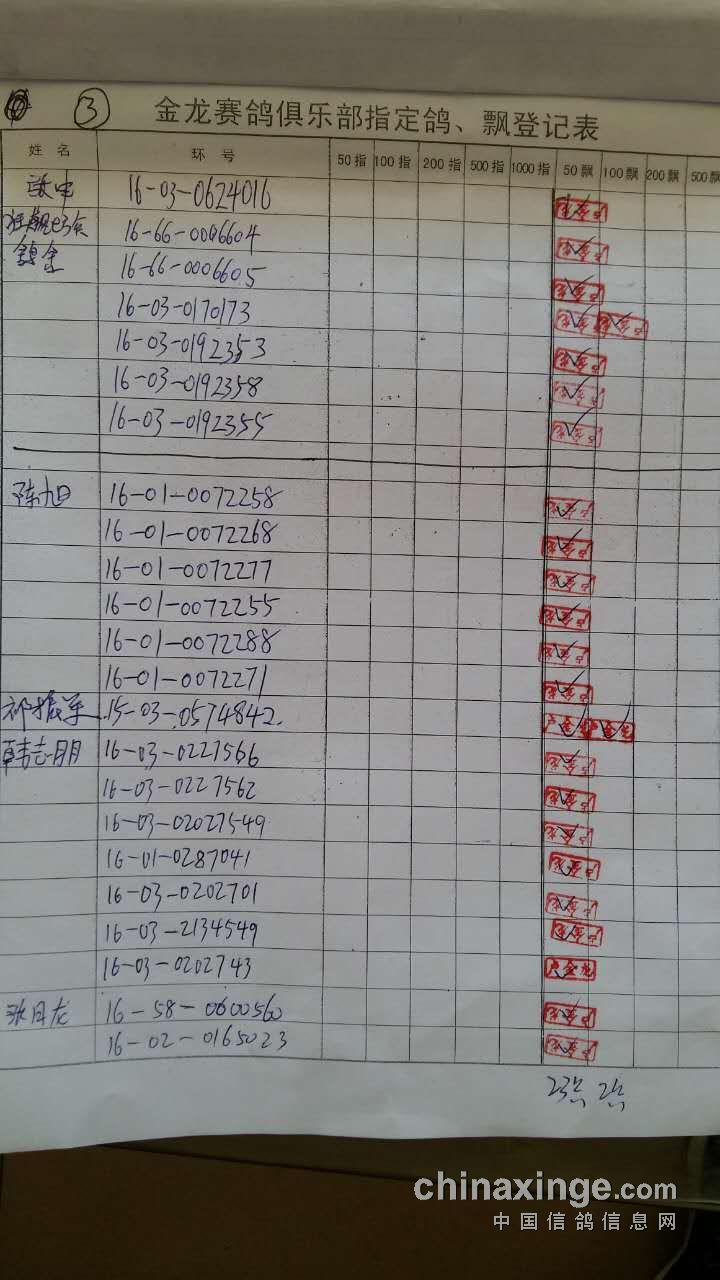 ③ 金龙赛鸽俱乐部指定鸽、飘登记表
姓 名 环 号 50 指 100 指 200 指 500 指 1000 指 50 飘 100 飘 200 飘 500 飘
16-03-0624016
16-66-0006604
16-66-0006605
16-03-0170173
16-03-0192353
16-03-0192358
16-03-0192355
陈旭 16-01-0072258
16-01-0072268
16-01-0072277
16-01-0072255
16-01-0072288
16-01-0072271
祁振军 15-03-0574842.
韩志明 16-03-0227566
16-03-0227562
16-03-02027549
16-01-0287041
16-03-0202701
16-03-2134549
16-03-0202743
张月龙 16-58-0600560
16-02-0165023
23 2
chinaxinge.com
中国信鸽信息网